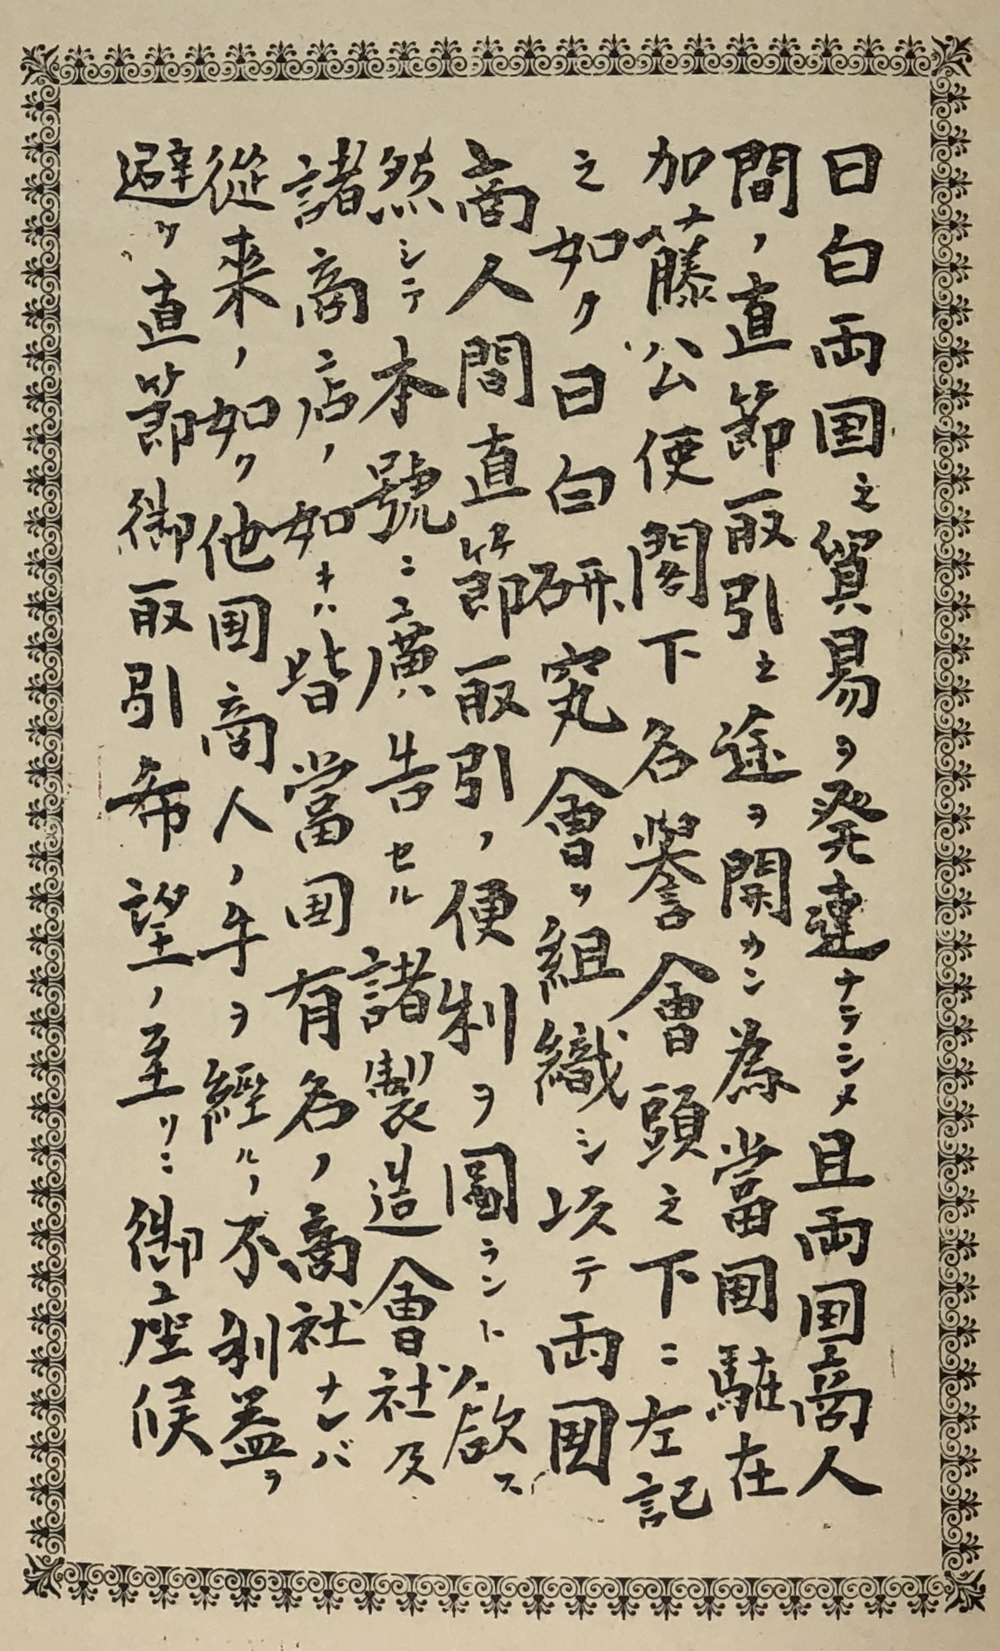 日白両国之貿易ヲ発達ナラシメ且両国商人
間ノ直節取引之途ヲ開カン為當国駐在
加藤公使閣下名誉會頭之下ニ左記
之如ク日白研究會ヲ組織シ以テ両國
商人間直節取引ノ便利ヲ圖ラント欲ス
然シテ本號ニ廣告セル諸製造會社及
諸商店ノ如キハ皆當国有名ノ商社ナレバ
從来ノ如ク他国商人ノ手ヲ經ルノ不利益ヲ
避ケ直節御取引希望ノ至リニ御座候